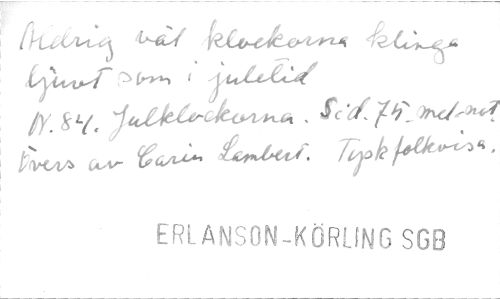 Aldrig väl klockorna klinga
ljuvt som i juletid
N. 84. Julklockorna. Sid. 75. mel-not.
Övers av Carin Lambert. Tysk folkvisa.
ERLANSON-KÖRLING SGB